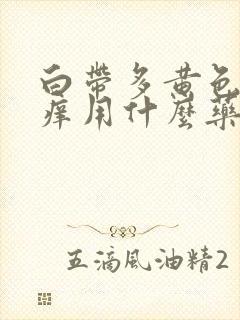 白帶多黄色
痒用什麼藥
五滴風油精2